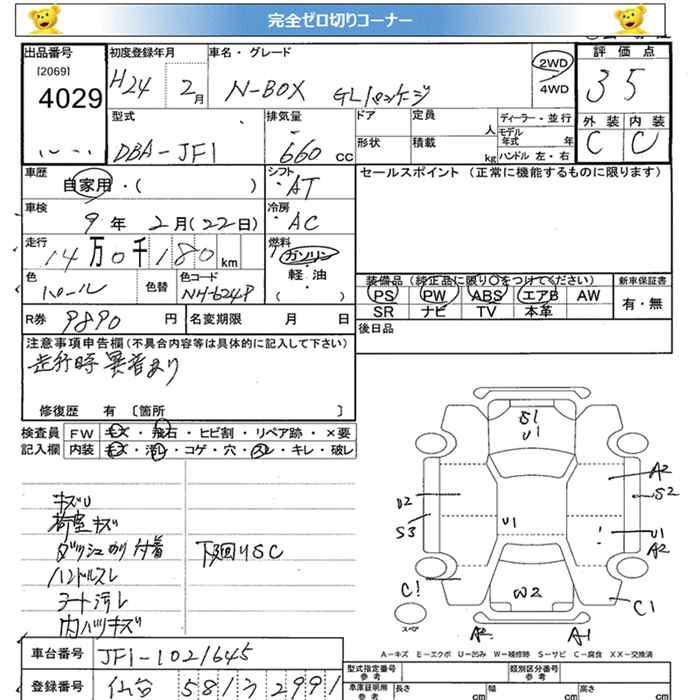 完全ゼロ切りコーナー
出品番号 初度登録年月 車名・グレード 評価点
[2069]
4029
H24 2月 N-BOX GLパッケージ 2WD 4WD 3 5
型式 排気量 ドア 定員 人 ディーラー・並行 外装 内装
モデル年式 年
DBA-JF1 660 cc 形状 積載 kg ハンドル 左・右 C C
車歴 シフト セールスポイント (正常に機能するものに限ります)
自家用・( ) AT
車検 冷房
9年 2月(22日) AC
走行 燃料
14万0千180 km ガソリン
軽・油
( )
色 色替 色コード 装備品(純正品に限り○をつけてください) 新車保証書
パール NH-624P PS PW ABS エアB AW 有・無
SR ナビ TV 本革
R券 9890 円 名変期限 月 日 後日品
注意事項申告欄(不具合内容等は具体的に記入して下さい)
走行時 異音あり
修復歴 有 〔箇所 〕
検査員 FW キズ・飛石・ヒビ割・リペア跡・×要
記入欄 内装 キズ・汚レ・コゲ・穴・スレ・キレ・破レ
キズU
荷室キズ
ダッシュのり付着 下廻りSC
ハンドルスレ
シート汚レ
内ハリキズ
S1
U1
A2
S2
U2
S3
U1
U1
A2
C1
W2
C1
スペア
A2 A1
A-キズ E-エクボ U-凹み W-補修跡 S-サビ C-腐食 XX-交換済
車台番号 JF1-1021645
型式指定番号 参考 類別区分番号 参考
登録番号 仙台 581 ひ 2991
車庫証明用 参考 長さ cm 幅 cm 高さ cm